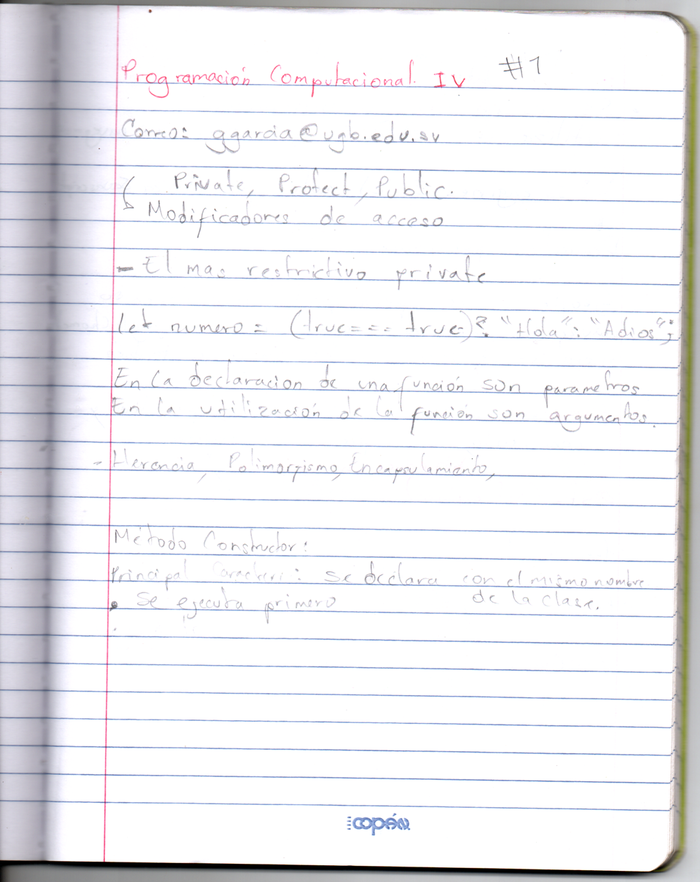 Programación Computacional IV #1
Correo: ggarcia@ugb.edu.sv
Private, Protect, Public.
Modificadores de acceso
- El mas restrictivo private
let numero = (true === true)? "Hola": "Adios";
En la declaracion de una función son parametros
En la utilización de la función son argumentos.
- Herencia, Polimorfismo, Encapsulamiento,
Método Constructor:
Principal Caracteri: se declara con el mismo nombre
de la clase.
• Se ejecuta primero
copán